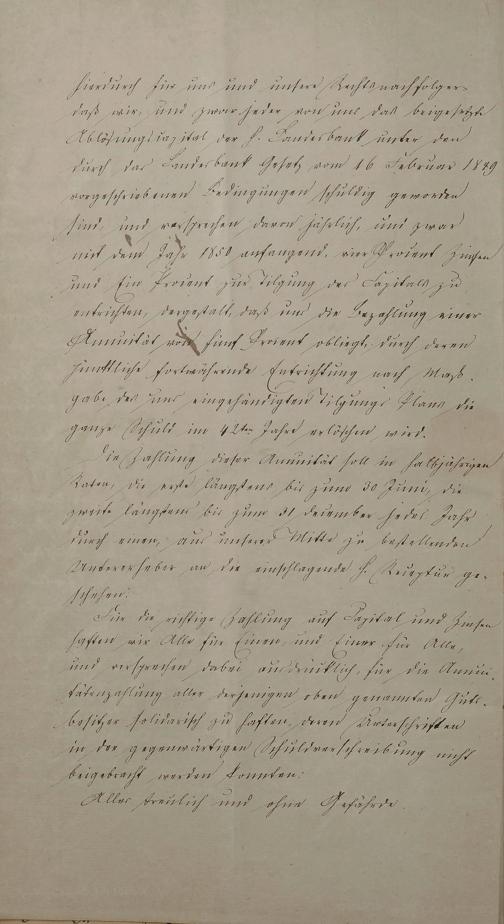 hierdurch für uns und unsere Rechtsnachfolger
daß wir, und zwar jeder von uns das beigesetzte
Ablösungscapital der H. Landesbank unter den
durch das Landesbank Gesetz vom 16 Februar 1849
vorgeschriebenen Bedingungen schuldig geworden
sind, und versprechen davon jährlich, und zwar
mit dem Jahr 1850 anfangend, vier Procent Zinsen
und Ein Procent zur Tilgung des Capitals zu
entrichten, dergestalt, daß uns die Bezahlung einer
Annuität von fünf Procent obliegt, durch deren
pünktliche fortwährende Entrichtung nach Maß-
gabe des uns eingehändigten Tilgungs Plans die
ganze Schuld im 42ten Jahre erlöschen wird.
Die Zahlung dieser Annuität soll in halbjährigen
Raten, die erste längstens bis zum 30 Juni, die
zweite längstens bis zum 31 December jedes Jahr
durch einen, aus unserer Mitte zu bestellenden
Untererheber an die einschlagende H. Receptur ge-
schehen.
Für die richtige Zahlung auf Capital und Zinsen
haften wir Alle für Einen, und Einer für Alle,
und versprechen dabei ausdrücklich, für die Annui-
tätenzahlung aller derjenigen oben genannten Guts-
besitzer solidarisch zu haften, deren Unterschriften
in der gegenwärtigen Schuldverschreibung nicht
beigebracht werden konnten.
Alles treulich und ohne Gefährde.